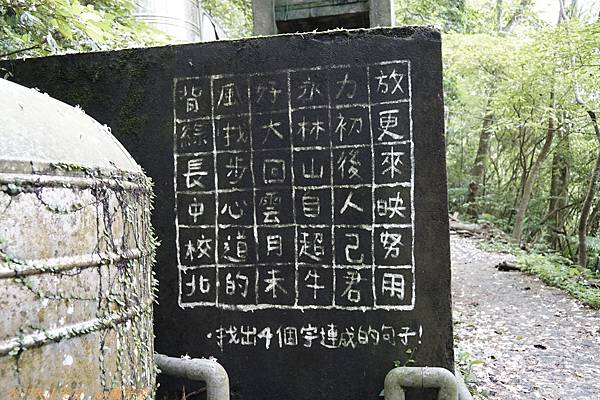 背風好永力放
綠找大林初更
長步回山後來
中心雲自人映
校道月超己努
北的未牛君用
·找出4個字連成的句子!